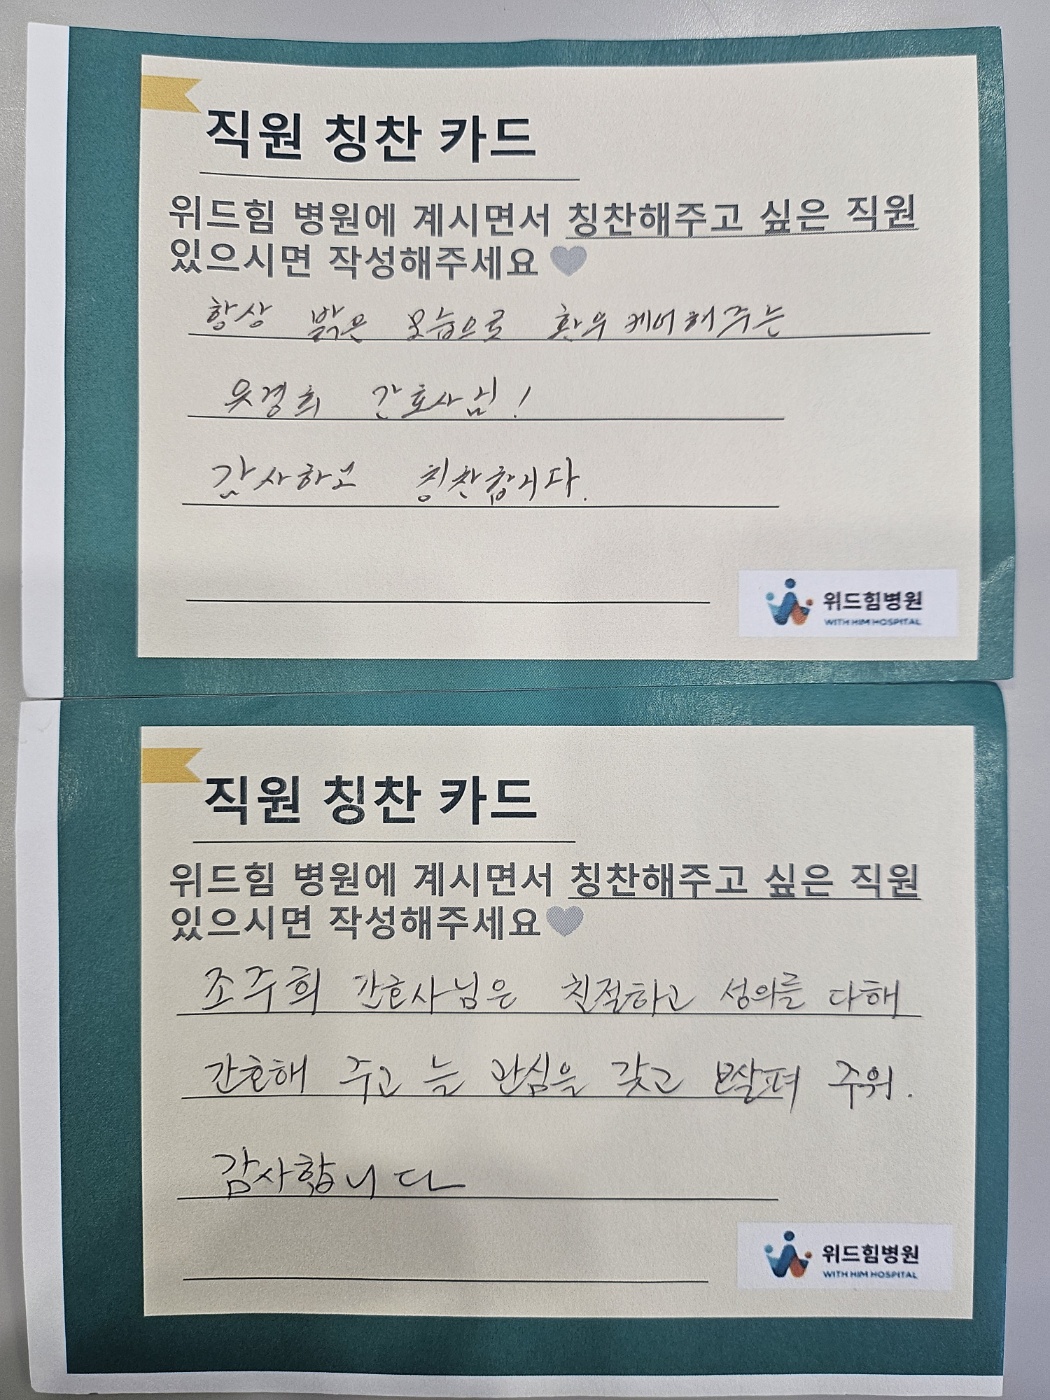 직원 칭찬 카드
위드힘 병원에 계시면서 칭찬해주고 싶은 직원
있으시면 작성해주세요
항상 밝은 모습으로 환우 케어해주는
경희 간호사님!
감사하고 칭찬합니다.
위드힘병원
WITH HIM HOSPITAL
직원 칭찬 카드
위드힘 병원에 계시면서 칭찬해주고 싶은 직원
있으시면 작성해주세요
조주희 간호사님은 친절하고 성의를 다해
간호해 주고 늘 관심을 갖고 보살펴 주워.
감사합니다
위드힘병원
WITH HIM HOSPITAL